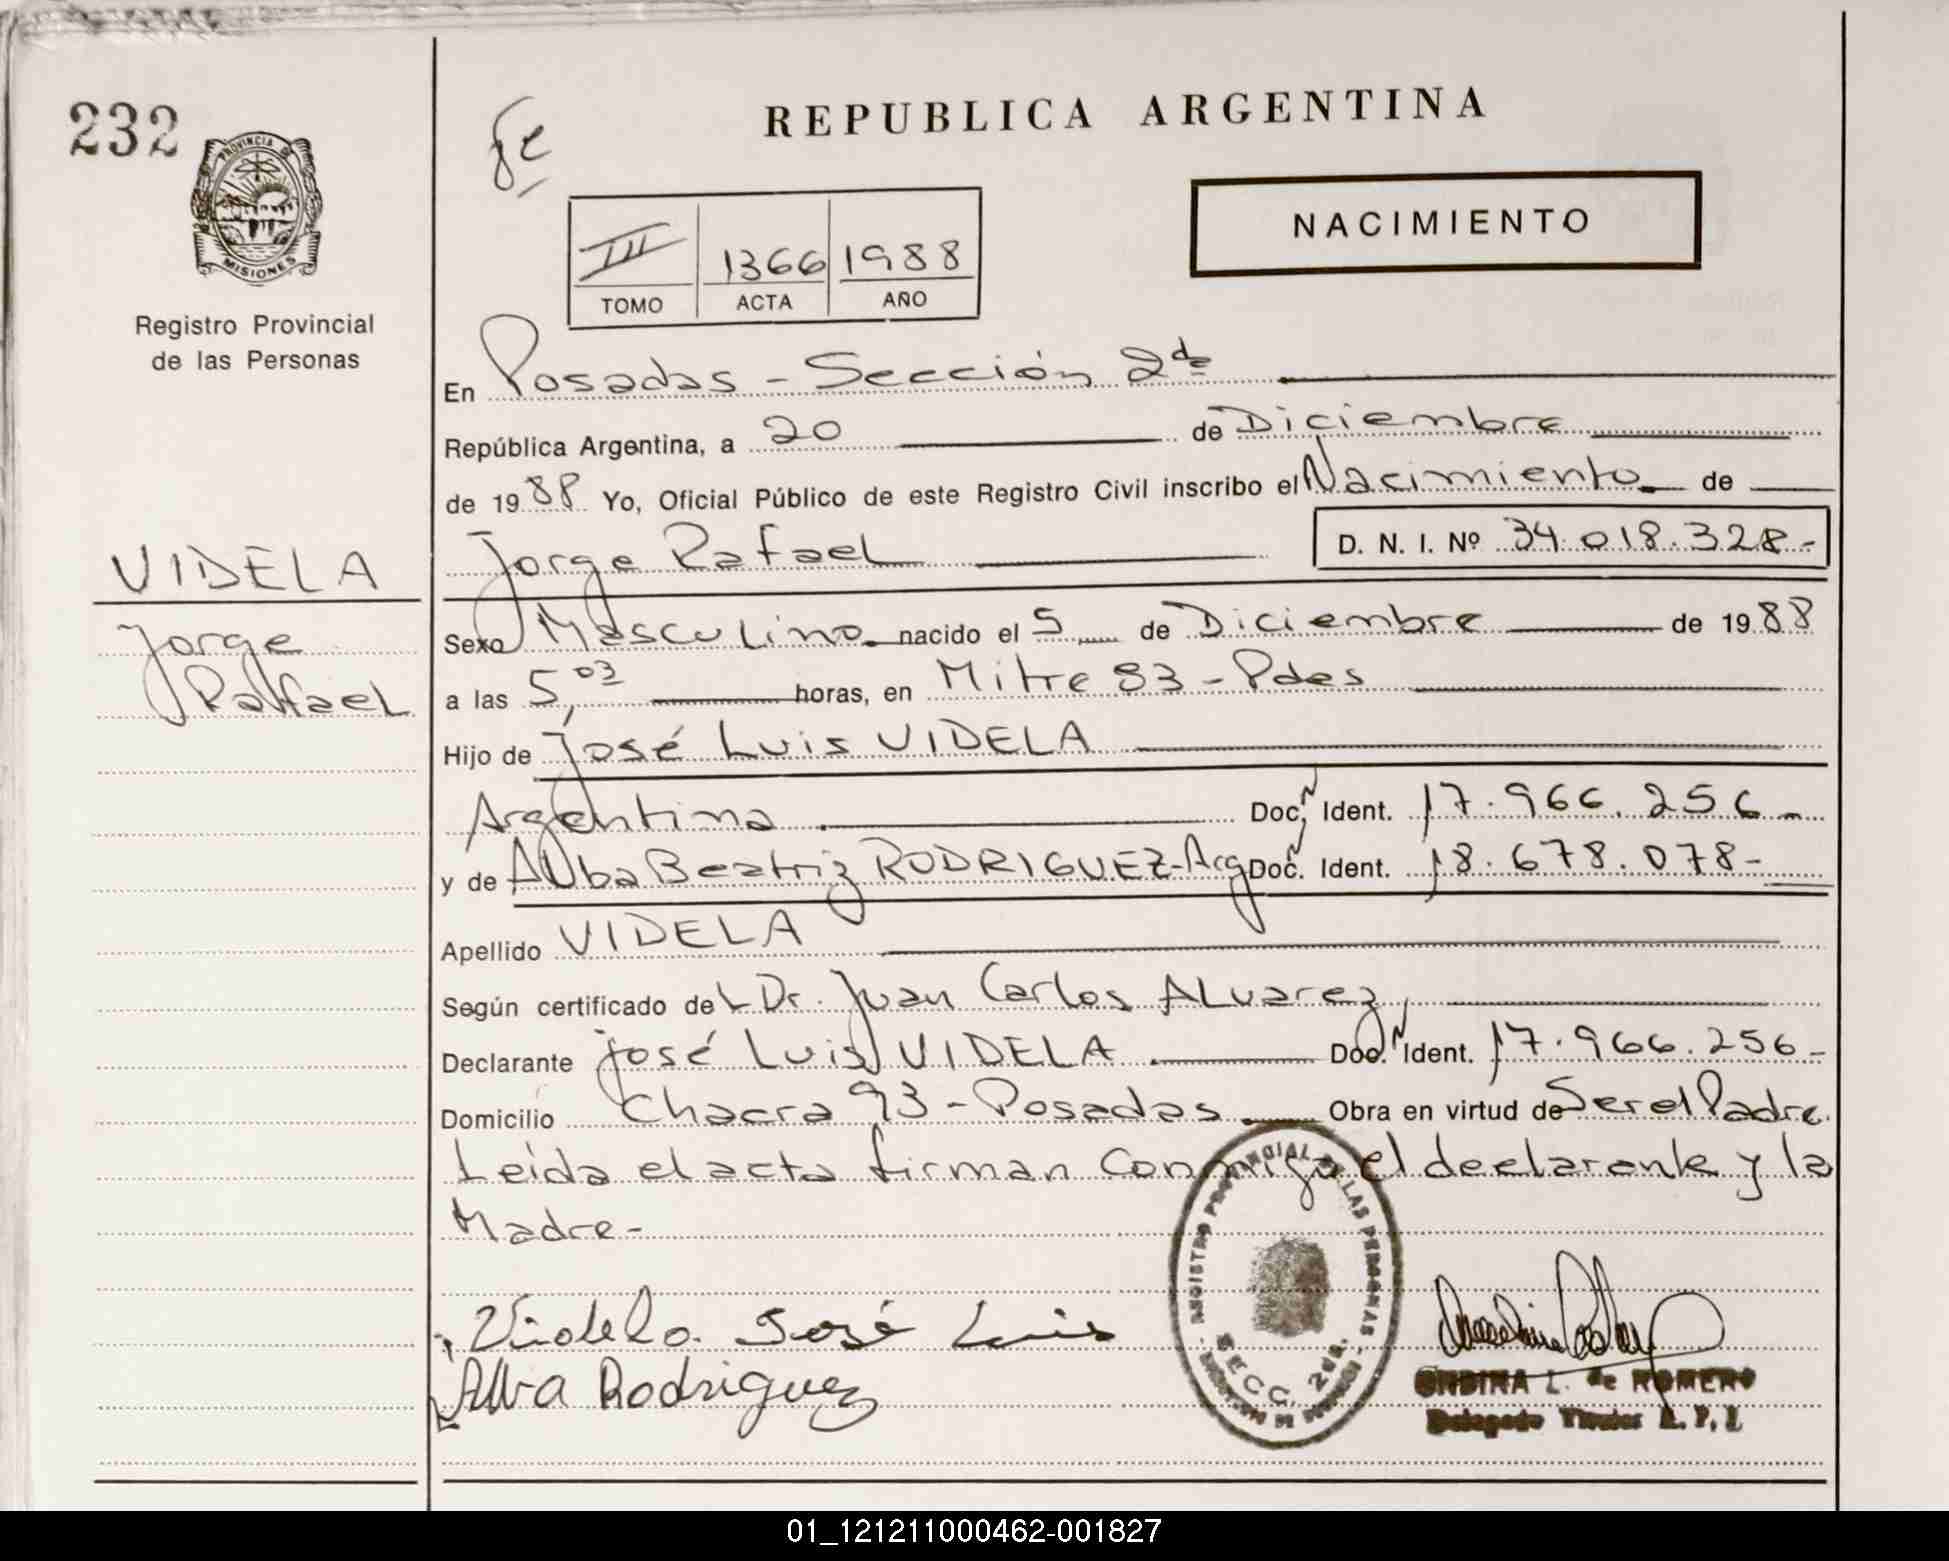 232
PROVINCIA DE
MISIONES
Registro Provincial
de las Personas
VIDELA
Jorge
Rafael
REPUBLICA ARGENTINA
NACIMIENTO
III 1366 1988
TOMO ACTA AÑO
En Posadas - Sección 2da
República Argentina, a 20 de Diciembre
de 1988 Yo, Oficial Público de este Registro Civil inscribo el Nacimiento de
Jorge Rafael D. N. I. Nº 34.018.328-
Sexo Masculino nacido el 5 de Diciembre de 1988
a las 5,03 horas, en Mitre 83 - Pdas
Hijo de José Luis VIDELA
Argentina Doc. Ident. 17.966.256-
y de Alba Beatriz RODRIGUEZ-Arg Doc. Ident. 18.678.078-
Apellido VIDELA
Según certificado del Dr. Juan Carlos ALvarez,
Declarante José Luis VIDELA Doc. Ident. 17.966.256-
Domicilio Chacra 93 - Posadas Obra en virtud de Ser el Padre.
Leída el acta firman conmigo el declarante y la
Madre-
Videla José Luis
Alba Rodriguez
REGISTRO PROVINCIAL DE LAS PERSONAS
SECC. 2da.
L. de ROMERO
Delegado Titular
01_121211000462-001827